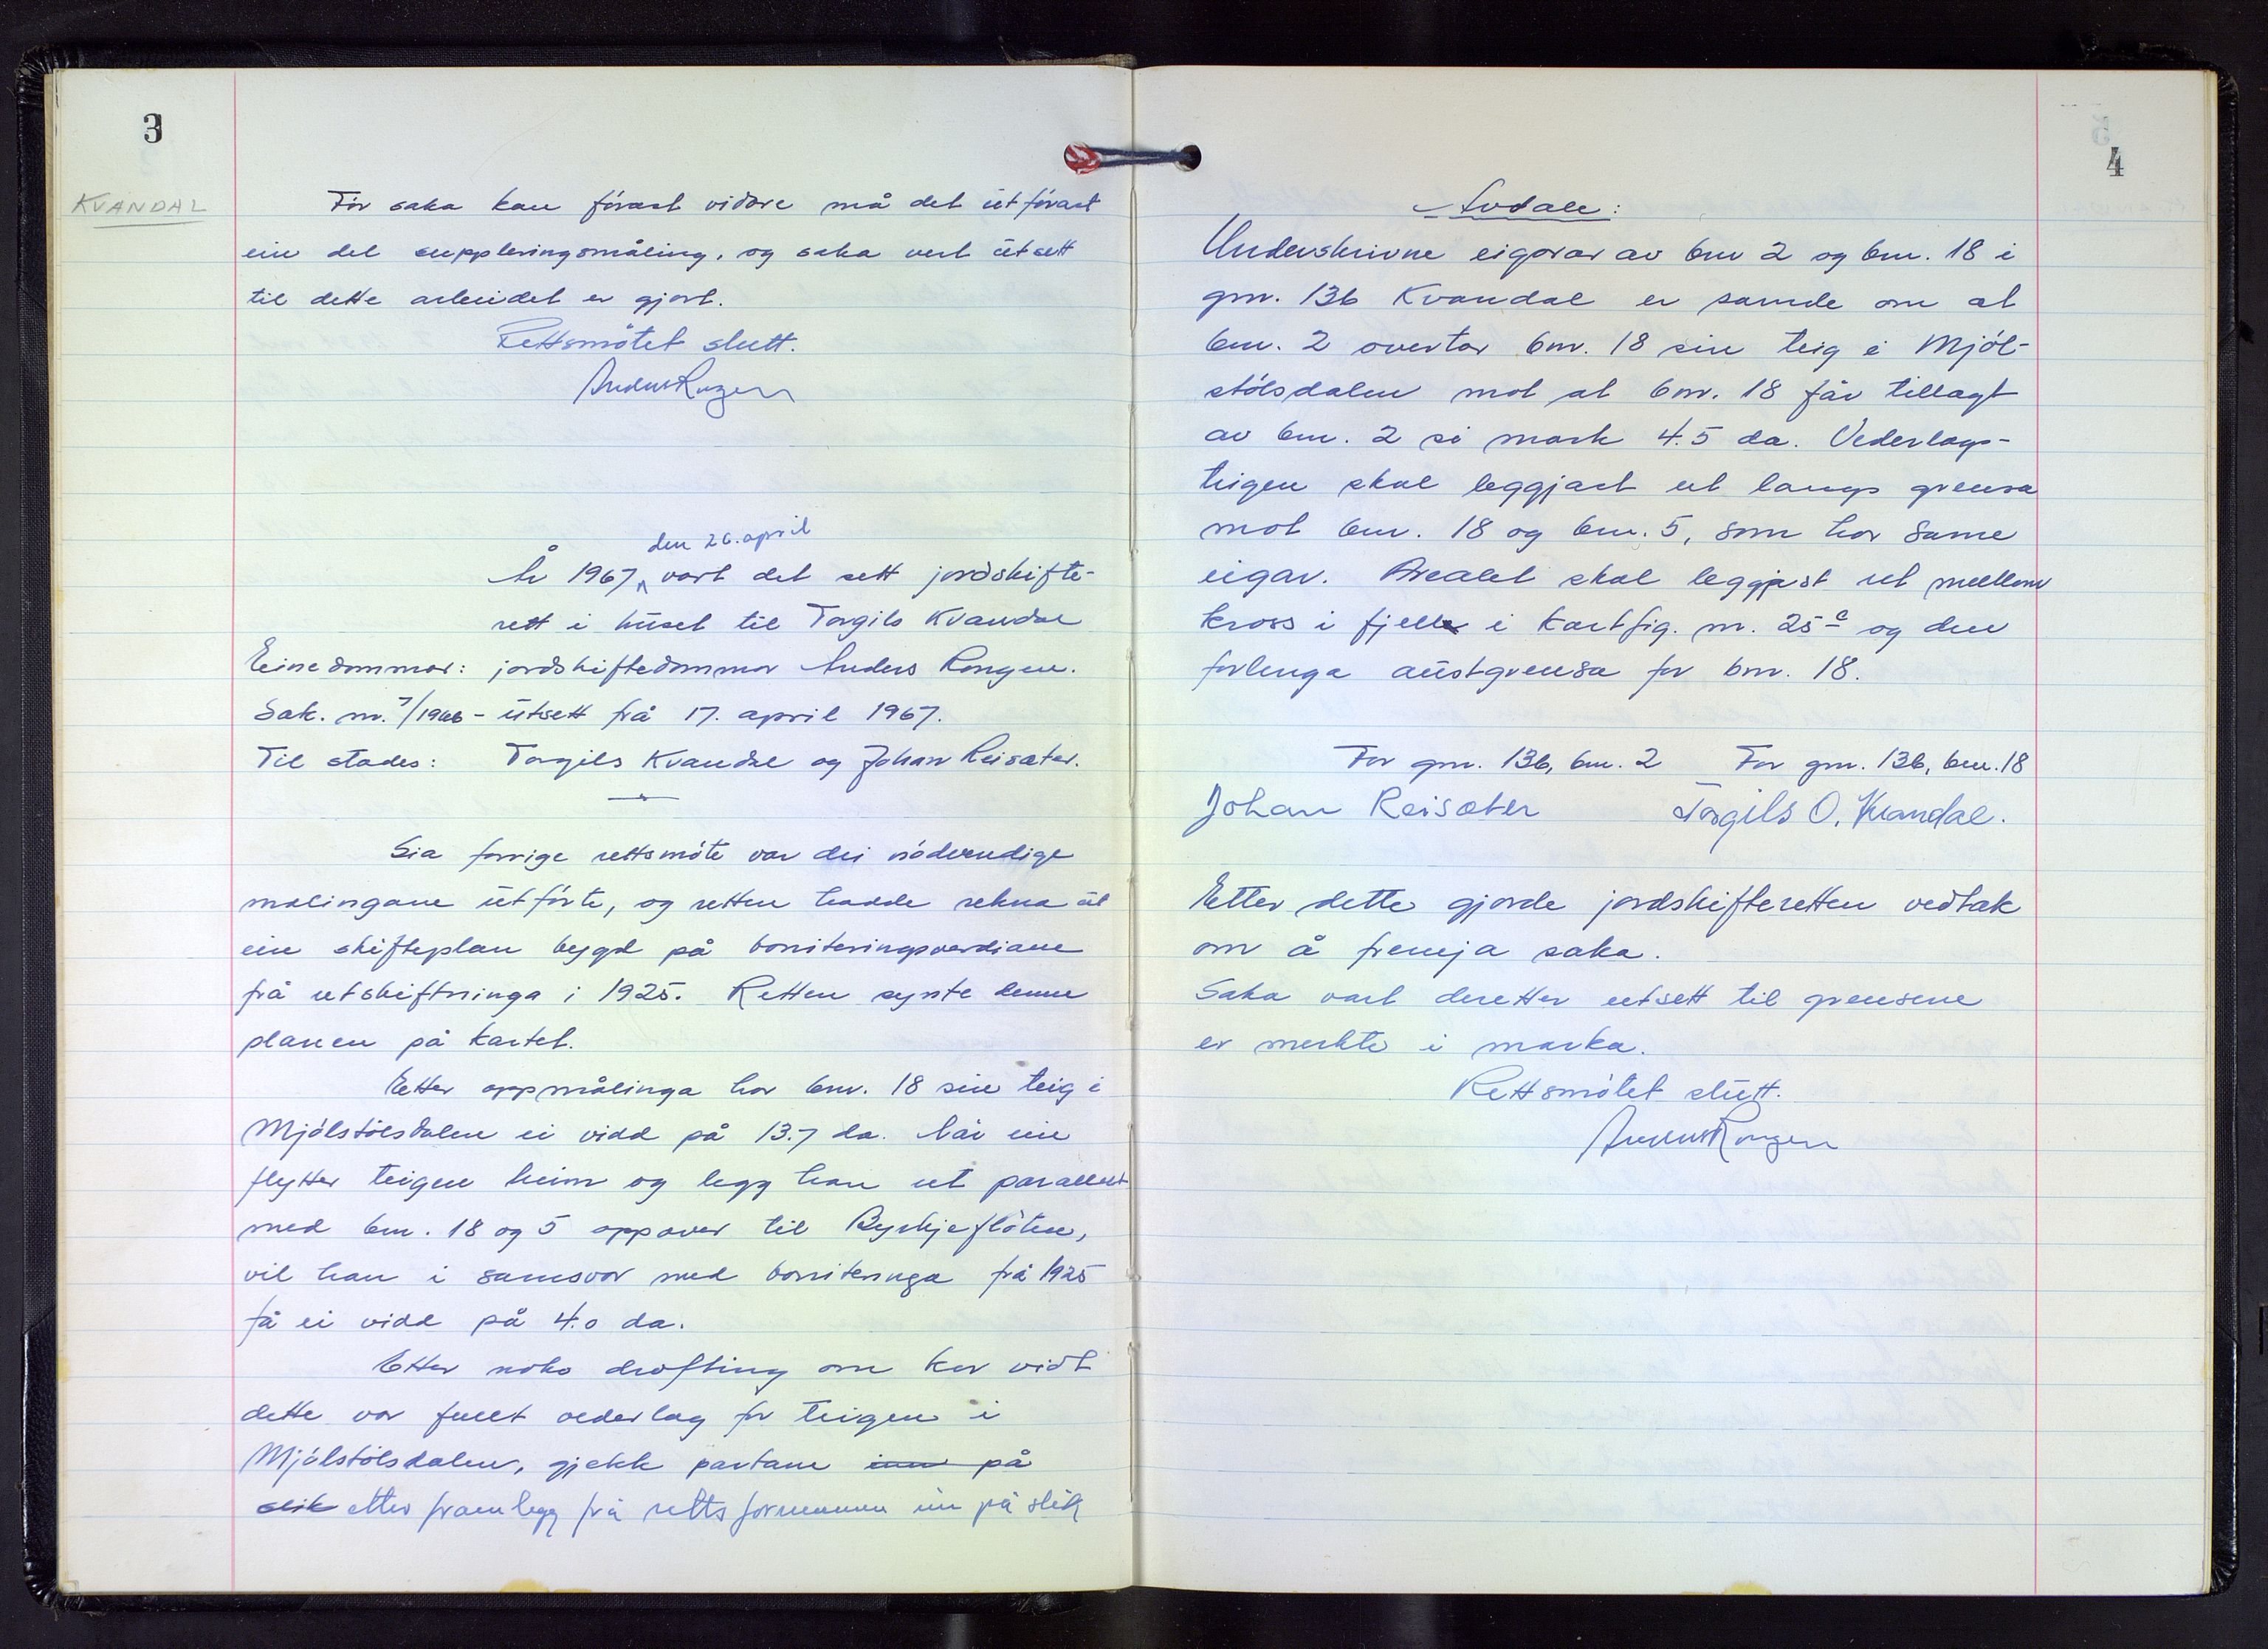 3
KVANDAL
Før saka kan førast vidare må det utførast
ein del suppleringsmåling, og saka vert utsett
til dette arbeidet er gjort.
Rettsmøtet slutt.
Anders Rongen
den 26. april
År 1967, vart det sett jordskifte-
rett i huset til Torgils Kvandal
Einedommar: jordskiftedommar Anders Rongen.
Sak. nr. 7/1966 - utsett frå 17. april 1967.
Til stades: Torgils Kvandal og Johan Reisæter.
Sia forrige rettsmøte var dei nødvendige
målingane utførte, og retten hadde rekna ut
ein skifteplan bygd på boniteringsverdiane
frå utskiftninga i 1925. Retten synte denne
planen på kartet.
Etter oppmålinga har bnr. 18 sin teig i
Mjølstølsdalen ei vidd på 13.7 da. Når ein
flytter teigen heim og legg han ut parallelt
med bnr. 18 og 5 oppover til Byrkjeflöten,
vil han i samsvar med boniteringa frå 1925
få ei vidd på 4.0 da.
Etter noko drøfting om kor vidt
dette var fullt vederlag for teigen i
Mjølstølsdalen, gjekk partane inn på
slik etter framlegg frå rettsformannen inn på slik
4
Avdale:
Underskrivne eigarar av bnr 2 og bnr. 18 i
gnr. 136 Kvandal er samde om at
bnr. 2 overtar bnr. 18 sin teig i Mjøl-
stølsdalen mot at bnr. 18 får tillagt
av bnr. 2 si mark 4.5 da. Vederlags-
teigen skal leggjast ut langs grensa
mot bnr. 18 og bnr. 5, som har same
eigar. Arealet skal leggjast ut mellom
kross i fjell i kartfig. nr. 25c og den
forlenga austgrensa for bnr. 18.
For gnr. 136, bnr. 2 For gnr. 136, bnr. 18
Johan Reisæter Torgils O. Kvandal.
Etter dette gjorde jordskifteretten vedtak
om å fremja saka.
Saka vart deretter utsett til grensene
er merkte i marka.
Rettsmøtet slutt.
Anders Rongen